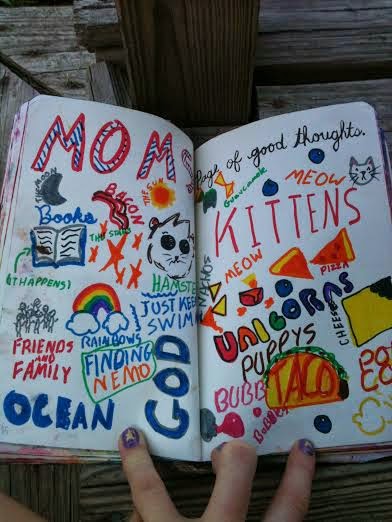 MOMS
THE MOON
BACON
THE SUN
Books
THE STARS
(IT HAPPENS)
HAMSTER
JUST KEEP
SWIM
RAINBOWS
FRIENDS
AND
FAMILY
FINDING
NEMO
GOD
OCEAN
Page of good thoughts.
Guacamole
MEOW
KITTENS
MEOW
NACHOS
PIZZA
UNICORNS
CHEESE
PUPPYS
TACO
BUBB